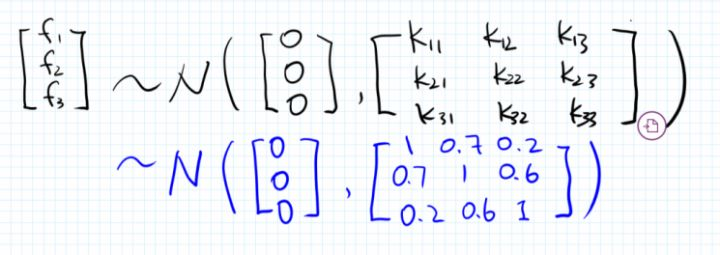 [f₁ f₂ f₃] ~ N([0 0 0], [k₁₁ k₁₂ k₁₃ k₂₁ k₂₂ k₂₃ k₃₁ k₃₂ k₃₃])
~ N([0 0 0], [1 0.7 0.2 0.7 1 0.6 0.2 0.6 1])